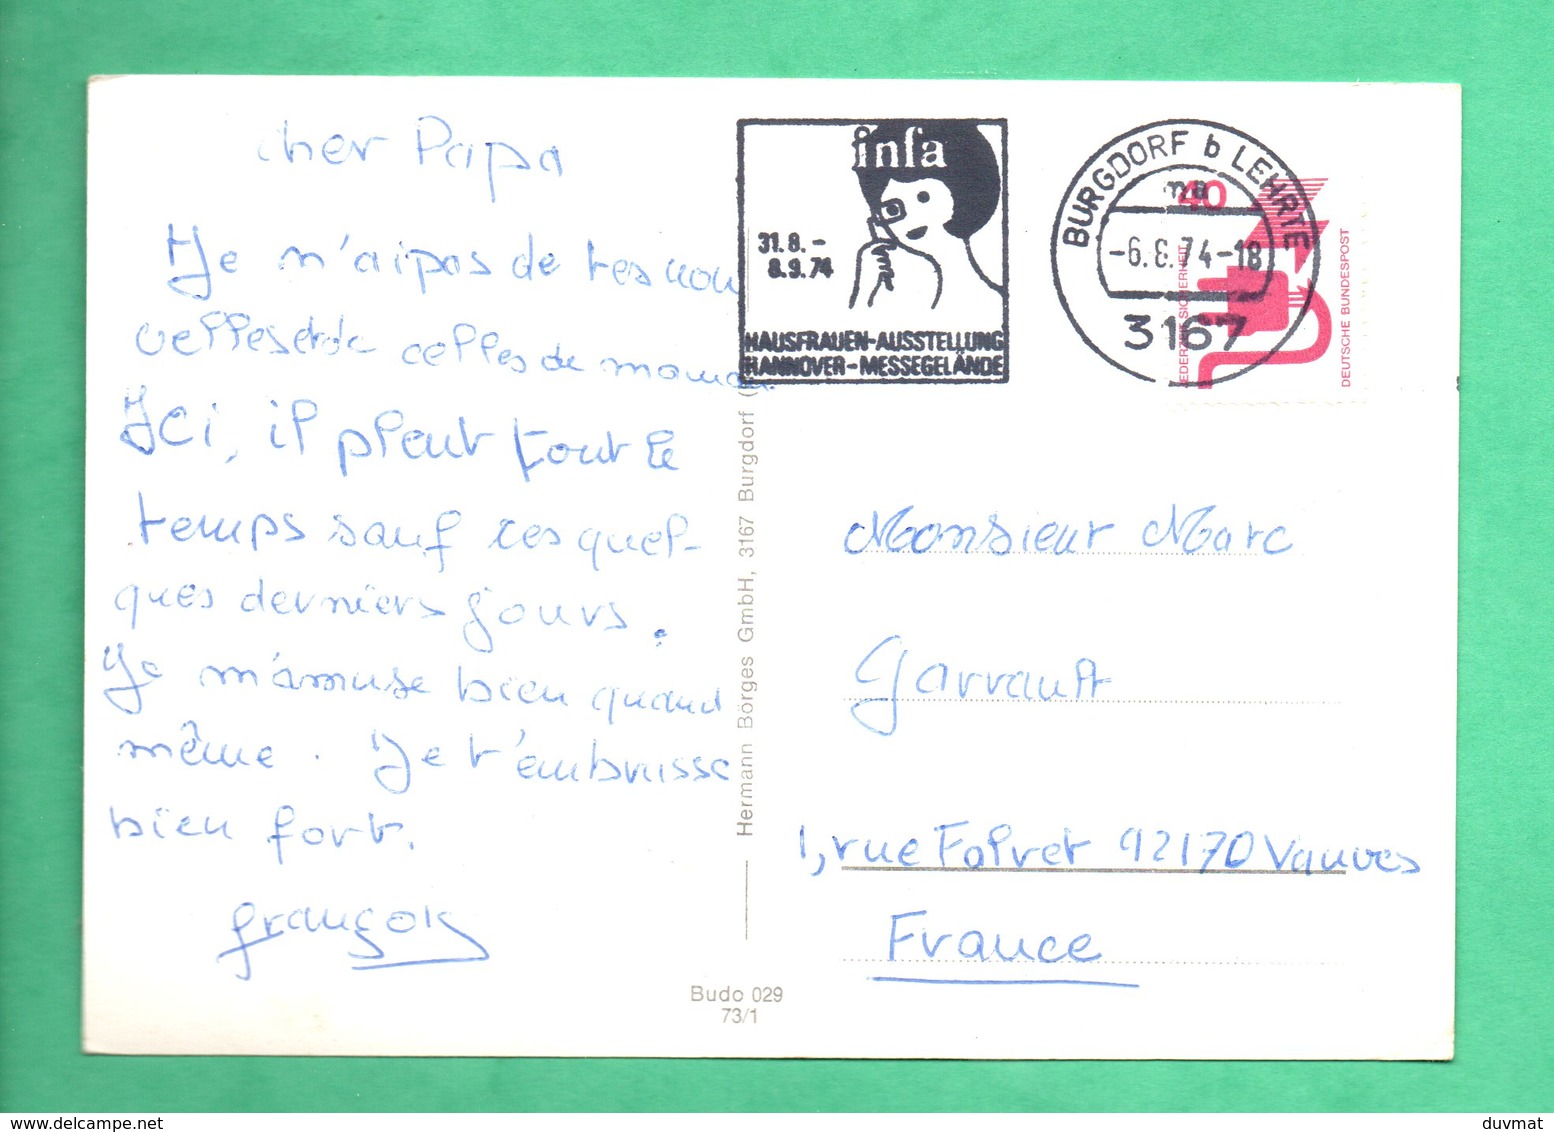 cher Papa
Je n'ai pas de tes nou
velles et de celles de maman.
Ici, il pleut tout le
temps sauf ces quel-
ques derniers jours.
Je m'amuse bien quand
même. Je t'embrasse
bien fort.
François
infa
31.8.-
8.9.74
HAUSFRAUEN-AUSSTELLUNG
HANNOVER-MESSEGELÄNDE
BURGDORF b LEHRTE
ma
-6.8.74-18
3167
40
JEDERZEIT SICHERHEIT
DEUTSCHE BUNDESPOST
Hermann Börges GmbH, 3167 Burgdorf (
Budo 029
73/1
Monsieur Marc
Garrault
1, rue Falret 92170 Vanves
France
duvmat